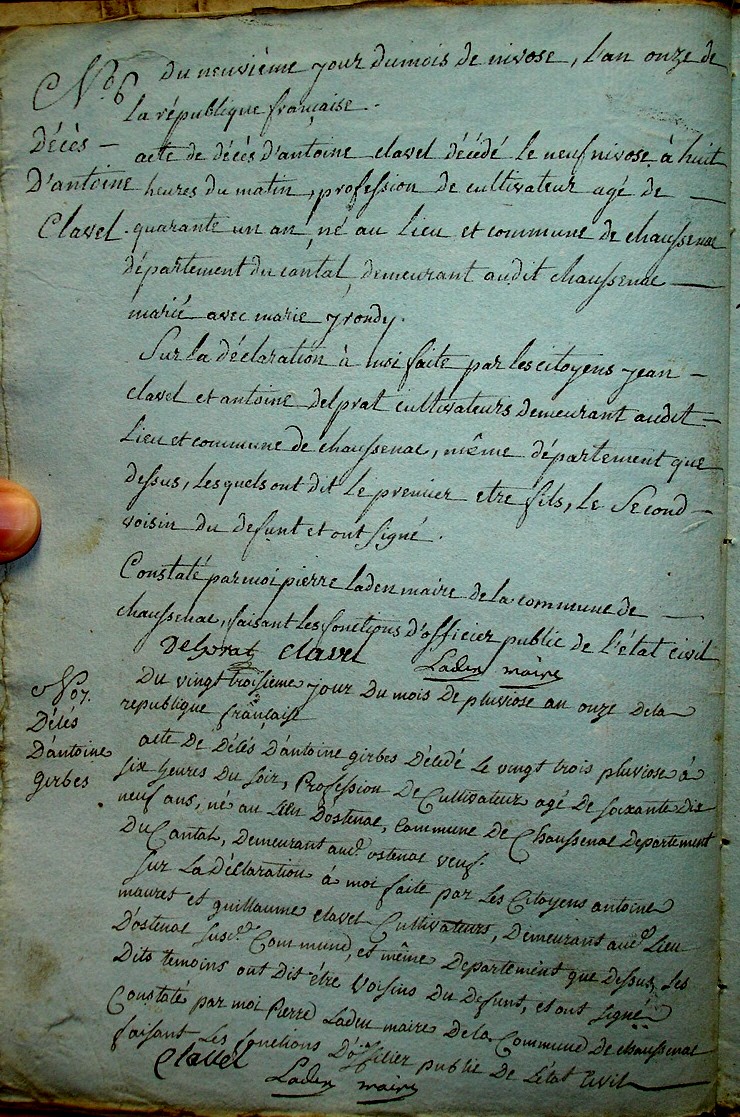 N° 6
Décès
D'antoine
Clavel.
Du neuvième jour du mois de nivose, l'an onze de
la république française.
acte de décès d'antoine clavel décédé le neuf nivose à huit
heures du matin, profession de cultivateur agé de
quarante un an, né au lieu et commune de chaussenac
département du cantal, demeurant audit chaussenac
marié avec marie
Sur la déclaration à moi faite par les citoyens jean
clavel et antoine delprat cultivateurs demeurant audit
Lieu et commune de chaussenac, même département que
dessus, lesquels ont dit le premier etre fils, le Second
voisin du defunt et ont signé.
Constaté par moi pierre laden maire de la commune de
chaussenac, faisant les fonctions d'officier public de l'état civil
Delprat clavel Laden maire
N° 7.
Décés
D'antoine
girbes
Du vingt troisieme jour Du mois De pluviose an onze Dela
republique française
acte De Décés D'antoine girbes Décédé Le vingt trois pluviose à
six heures Du soir, Profession De Cultivateur agé De soixante Dix
neuf ans, né au Lieu Dostenac, commune De Chaussenac Departement
Du Cantal, Demeurant aud. ostenac veuf.
Sur La Déclaration à moi faite par Les Citoyens antoine
maures et guillaume clavel Cultivateurs, Demeurant aud. Lieu
Dostenac susd. Commune, et même Departement que Dessus, Les
Dits temoins ont Dit être voisins Du Defunt, et ont signé
Constaté par moi Pierre Laden maire De la Commune De chaussenac
faisant Les fonctions D'officier public De L'état Civil
Clavel
Laden maire